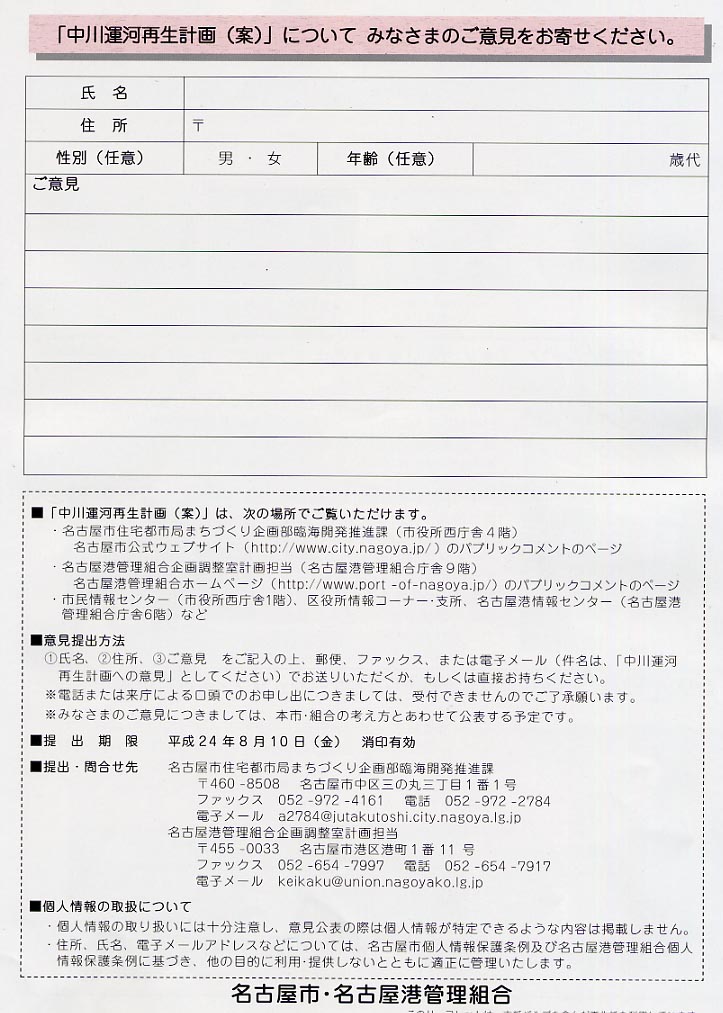 「中川運河再生計画（案）」について みなさまのご意見をお寄せください。
氏 名
住 所 〒
性別（任意） 男 ・ 女 年齢（任意） 歳代
ご意見
■「中川運河再生計画（案）」は、次の場所でご覧いただけます。
・名古屋市住宅都市局まちづくり企画部臨海開発推進課（市役所西庁舎４階）
名古屋市公式ウェブサイト（http://www.city.nagoya.jp/）のパブリックコメントのページ
・名古屋港管理組合企画調整室計画担当（名古屋港管理組合庁舎９階）
名古屋港管理組合ホームページ（http://www.port -of-nagoya.jp/）のパブリックコメントのページ
・市民情報センター（市役所西庁舎1階）、区役所情報コーナー・支所、名古屋港情報センター（名古屋港
管理組合庁舎6階）など
■意見提出方法
①氏名、②住所、③ご意見 をご記入の上、郵便、ファックス、または電子メール（件名は、「中川運河
再生計画への意見」としてください）でお送りいただくか、もしくは直接お持ちください。
※電話または来庁による口頭でのお申し出につきましては、受付できませんのでご了承願います。
※みなさまのご意見につきましては、本市・組合の考え方とあわせて公表する予定です。
■提 出 期 限 平成24年8月10日（金） 消印有効
■提出・問合せ先 名古屋市住宅都市局まちづくり企画部臨海開発推進課
〒460 -8508 名古屋市中区三の丸三丁目１番１号
ファックス 052 -972 -4161 電話 052 -972 -2784
電子メール a2784@jutakutoshi.city.nagoya.lg.jp
名古屋港管理組合企画調整室計画担当
〒455 -0033 名古屋市港区港町１番 11 号
ファックス 052 -654 -7997 電話 052 -654 -7917
電子メール keikaku@union.nagoyako.lg.jp
■個人情報の取扱について
・個人情報の取り扱いには十分注意し、意見公表の際は個人情報が特定できるような内容は掲載しません。
・住所、氏名、電子メールアドレスなどについては、名古屋市個人情報保護条例及び名古屋港管理組合個人
情報保護条例に基づき、他の目的に利用・提供しないとともに適正に管理いたします。
名古屋市・名古屋港管理組合